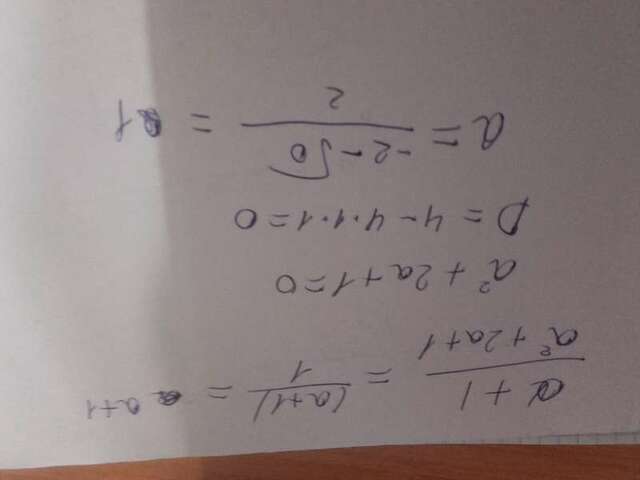 a + 1 / a² + 2a + 1 = (a+1) / 1 = a+1
a² + 2a + 1 = 0
D = 4 - 4·1·1 = 0
a = -2 - √0 / 2 = 1